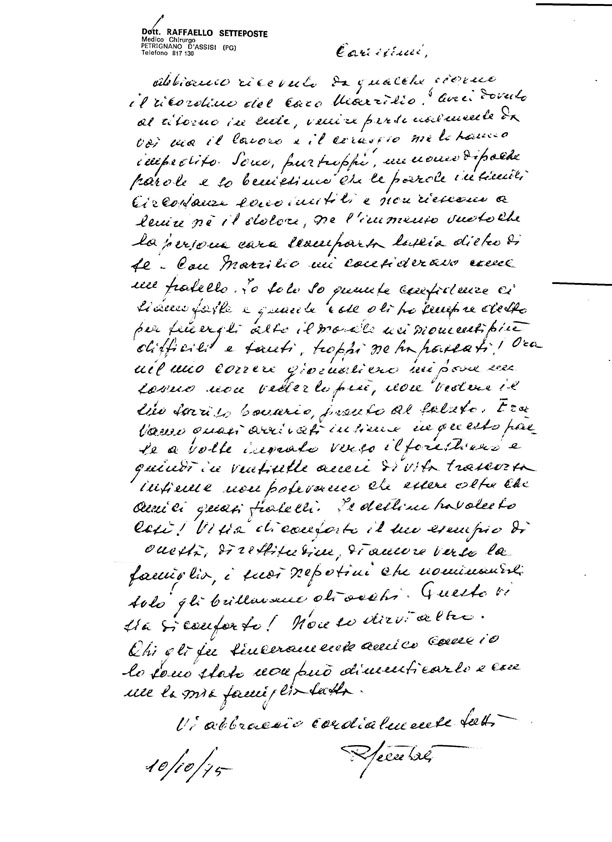 Dott. RAFFAELLO SETTEPOSTE
Medico Chirurgo
PETRIGNANO D'ASSISI (PG)
Telefono 817 130
Carissimi,
abbiamo ricevuto da qualche giorno
il ricordino del Caro Marzilio. Avrei dovuto
al ritorno in sede, venire personalmente da
voi ma il lavoro e il coraggio me lo hanno
impedito. Sono, purtroppo, un uomo di poche
parole e so benissimo che le parole in simili
circostanze sono inutili e non riescono a
lenire nè il dolore, nè l'immenso vuoto che
la persona cara scomparsa lascia dietro di
sè - Con Marzilio mi consideravo come
un fratello. Io solo so quante confidenze ci
siamo fatte e quante cose gli ho sempre detto
per tenergli alto il morale nei momenti più
difficili e tanti, troppi ne ha passati! Ora
nel mio correre giornaliero mi pare un
sogno non vederlo più, non vedere il
suo sorriso bonario, pronto al saluto. Era
vamo quasi arrivati insieme in questo pae
se a volte ingrato verso il forestiero e
quindi in ventisette anni di vita trascorsa
insieme non potevamo che essere oltre che
amici quasi fratelli. Il destino ha voluto
così! Vi sia di conforto il suo esempio di
onestà, di rettitudine, di amore verso la
famiglia, i suoi nepotini che nominandoli
solo gli brillavano gli occhi. Questo vi
sia di conforto! Non so dirvi altro.
Chi gli fu sinceramente amico come io
lo sono stato non può dimenticarlo e con
me la mia famiglia tutta.
Vi abbraccio cordialmente tutti
10/10/75